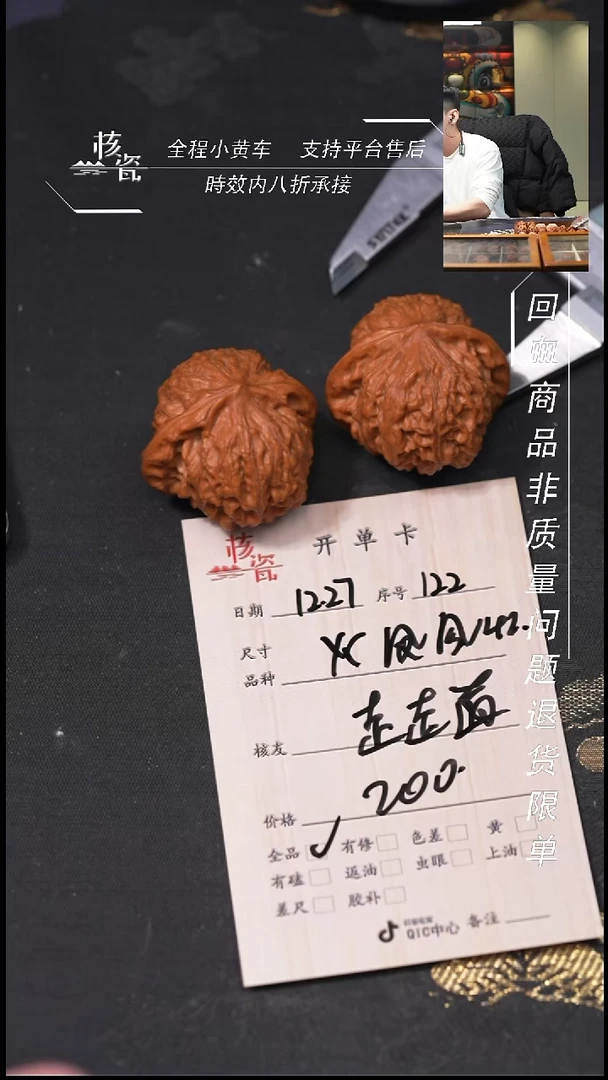 核瓷
全程小黄车 支持平台售后
時效内八折承接
回血商品非质量问题退货限单
核瓷
开单卡
日期 12.27 序号 122
尺寸
品种
核友 走走首
价格 200.
全品 ✓ 有修 色差 黄
有磕 返油 虫眼 上油
差尺 胶补
QIC中心 备注